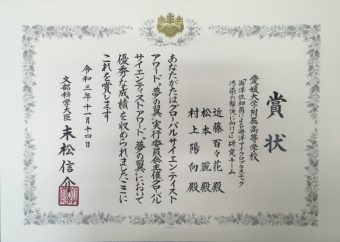 賞状
愛媛大学附属高等学校
「海洋性細菌による海洋マイクロプラスチック
汚染の解決に向けて」研究チーム
近藤百々花殿
松本麗殿
村上陽向殿
あなたがたはグローバルサイエンティスト
アワード“夢の翼”実行委員会主催グローバル
サイエンティストアワード“夢の翼”において
優秀な成績を収められました ここに
これを賞します
令和三年十一月十四日
文部科学大臣 末松信介